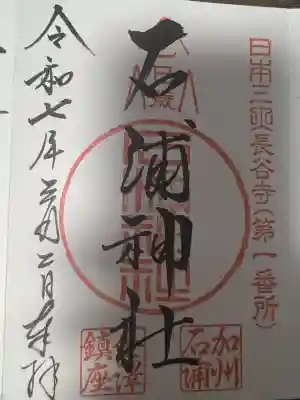 日本三所長谷寺(第一番所)
石浦神社
加州
石浦
鎮座
令和七年三月二日奉拝